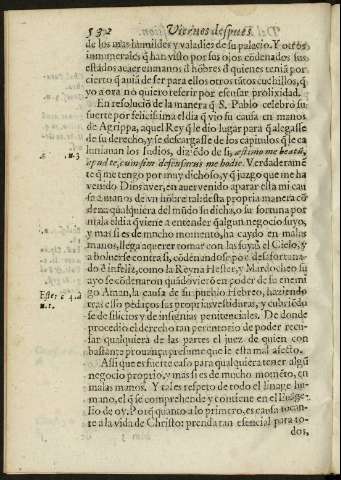 532 Viernes despues
de los mas humildes y valadies de su palacio. Y otros
innumerables q̃ han visto por sus ojos cõdenados sus
estados acaer en manos d̃ hõbres d̃ quienes tenia por
cierto q̃ auia de ser para ellos otros tãtos cuchillos, q̃
yo aora no quiero referir por escusar prolixidad.
En resoluciõ de la manera q̃ S. Pablo celebrò su
suerte por felicissima el dia q̃ vio su causa en manos
de Agrippa, aquel Rey q̃ le dio lugar para q̃ alegasse
de su derecho, y se descargasse de los capitulos q̃ le ca
lumniauan los Iudios, diziẽdo de si, æstimo me beatũ,
apud te, cum sim defensurus me hodie. Verdaderamẽ
te q̃ me tengo por muy dichoso, y q̃ juzgo que me ha
venido Dios aver, en auer venido aparar esta mi cau
sa a manos de vn hõbre tal: desta propria manera cõ
dena qualquiera del mũdo su dicha, o su fortuna por
mala el dia q̃ viene a entender q̃ algun negocio suyo,
y mas si es de mucho momẽto, ha caydo en malas
manos, llega aquerer tomar con las suyas el Cielo, y
a boluerse contra si, cõdenãdose por desafortuna-
do è infeliz, como la Reyna Hester, y Mardocheo su
ayo se cõdenaron quãdo vierõ en poder de su enemi
go Aman, la causa de su pueblo Hebreo, haziendo
tras esso pedaços las proprias vestiduras, y cubriẽdo
se de silicios y de insignias penitenciales. De donde
procedio el derecho tan perentorio de poder recu-
sar qualquiera de las partes el juez de quien con
bastante prouança presume que le esta mal afecto.
Assi que es fuerte caso para qualquiera tener algũ
negocio proprio, y mas si es de mucho momẽto, en
malas manos. Y tal es respeto de todo el linage hu-
mano, el q̃ se comprehende y contiene en el Euãge-
lio de oy. Porq̃ quanto a lo primero, es causa tocan-
te a la vida de Christo: prenda tan esencial para to-
dos,
Ester c. 4. a
n. 1.